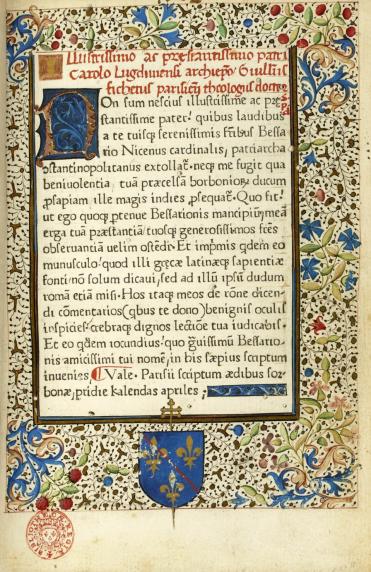 Illustrissimo ac præstantissimo patri
Carolo Lugdunensi archiepo Guillmus
fichetus parisien theologus doctor
Non sum nescius illustrissime ac præ
stantissime pater: quibus laudibus
a te tuisq serenissimis fribus Bessa
rio Nicenus cardinalis, patriarcha
ostantinopolitanus extollat. neq me fugit qua
beniuolentia tuā præcelsā borbonioru ducum
psapiam ille magis indies psequat. Quo fit:
ut ego quoq ptenue Bessarionis mancipiū meā
erga tuā præstantiā tuosq generosissimos frēs
obseruantiā uelim ostēdi. Et imprimis qdem eo
munusculo quod illi grecæ latinæq sapientiæ
fonti nō solum dicaui, sed ad illū ipsū dudum
romā etiā misi. Hos itaq meos de rōne dicen
di cōmentarios (qbus te dono) benignis oculis
inspicies crebraq dignos lectiōe tua iudicabis.
Et eo qdem iocundius quo grauissimū Bessario
nis amicissimi tui nomē in bis sæpius scriptum
inuenies Vale. Parisii scriptum ædibus sor
bonæ, pridie kalendas apriles;